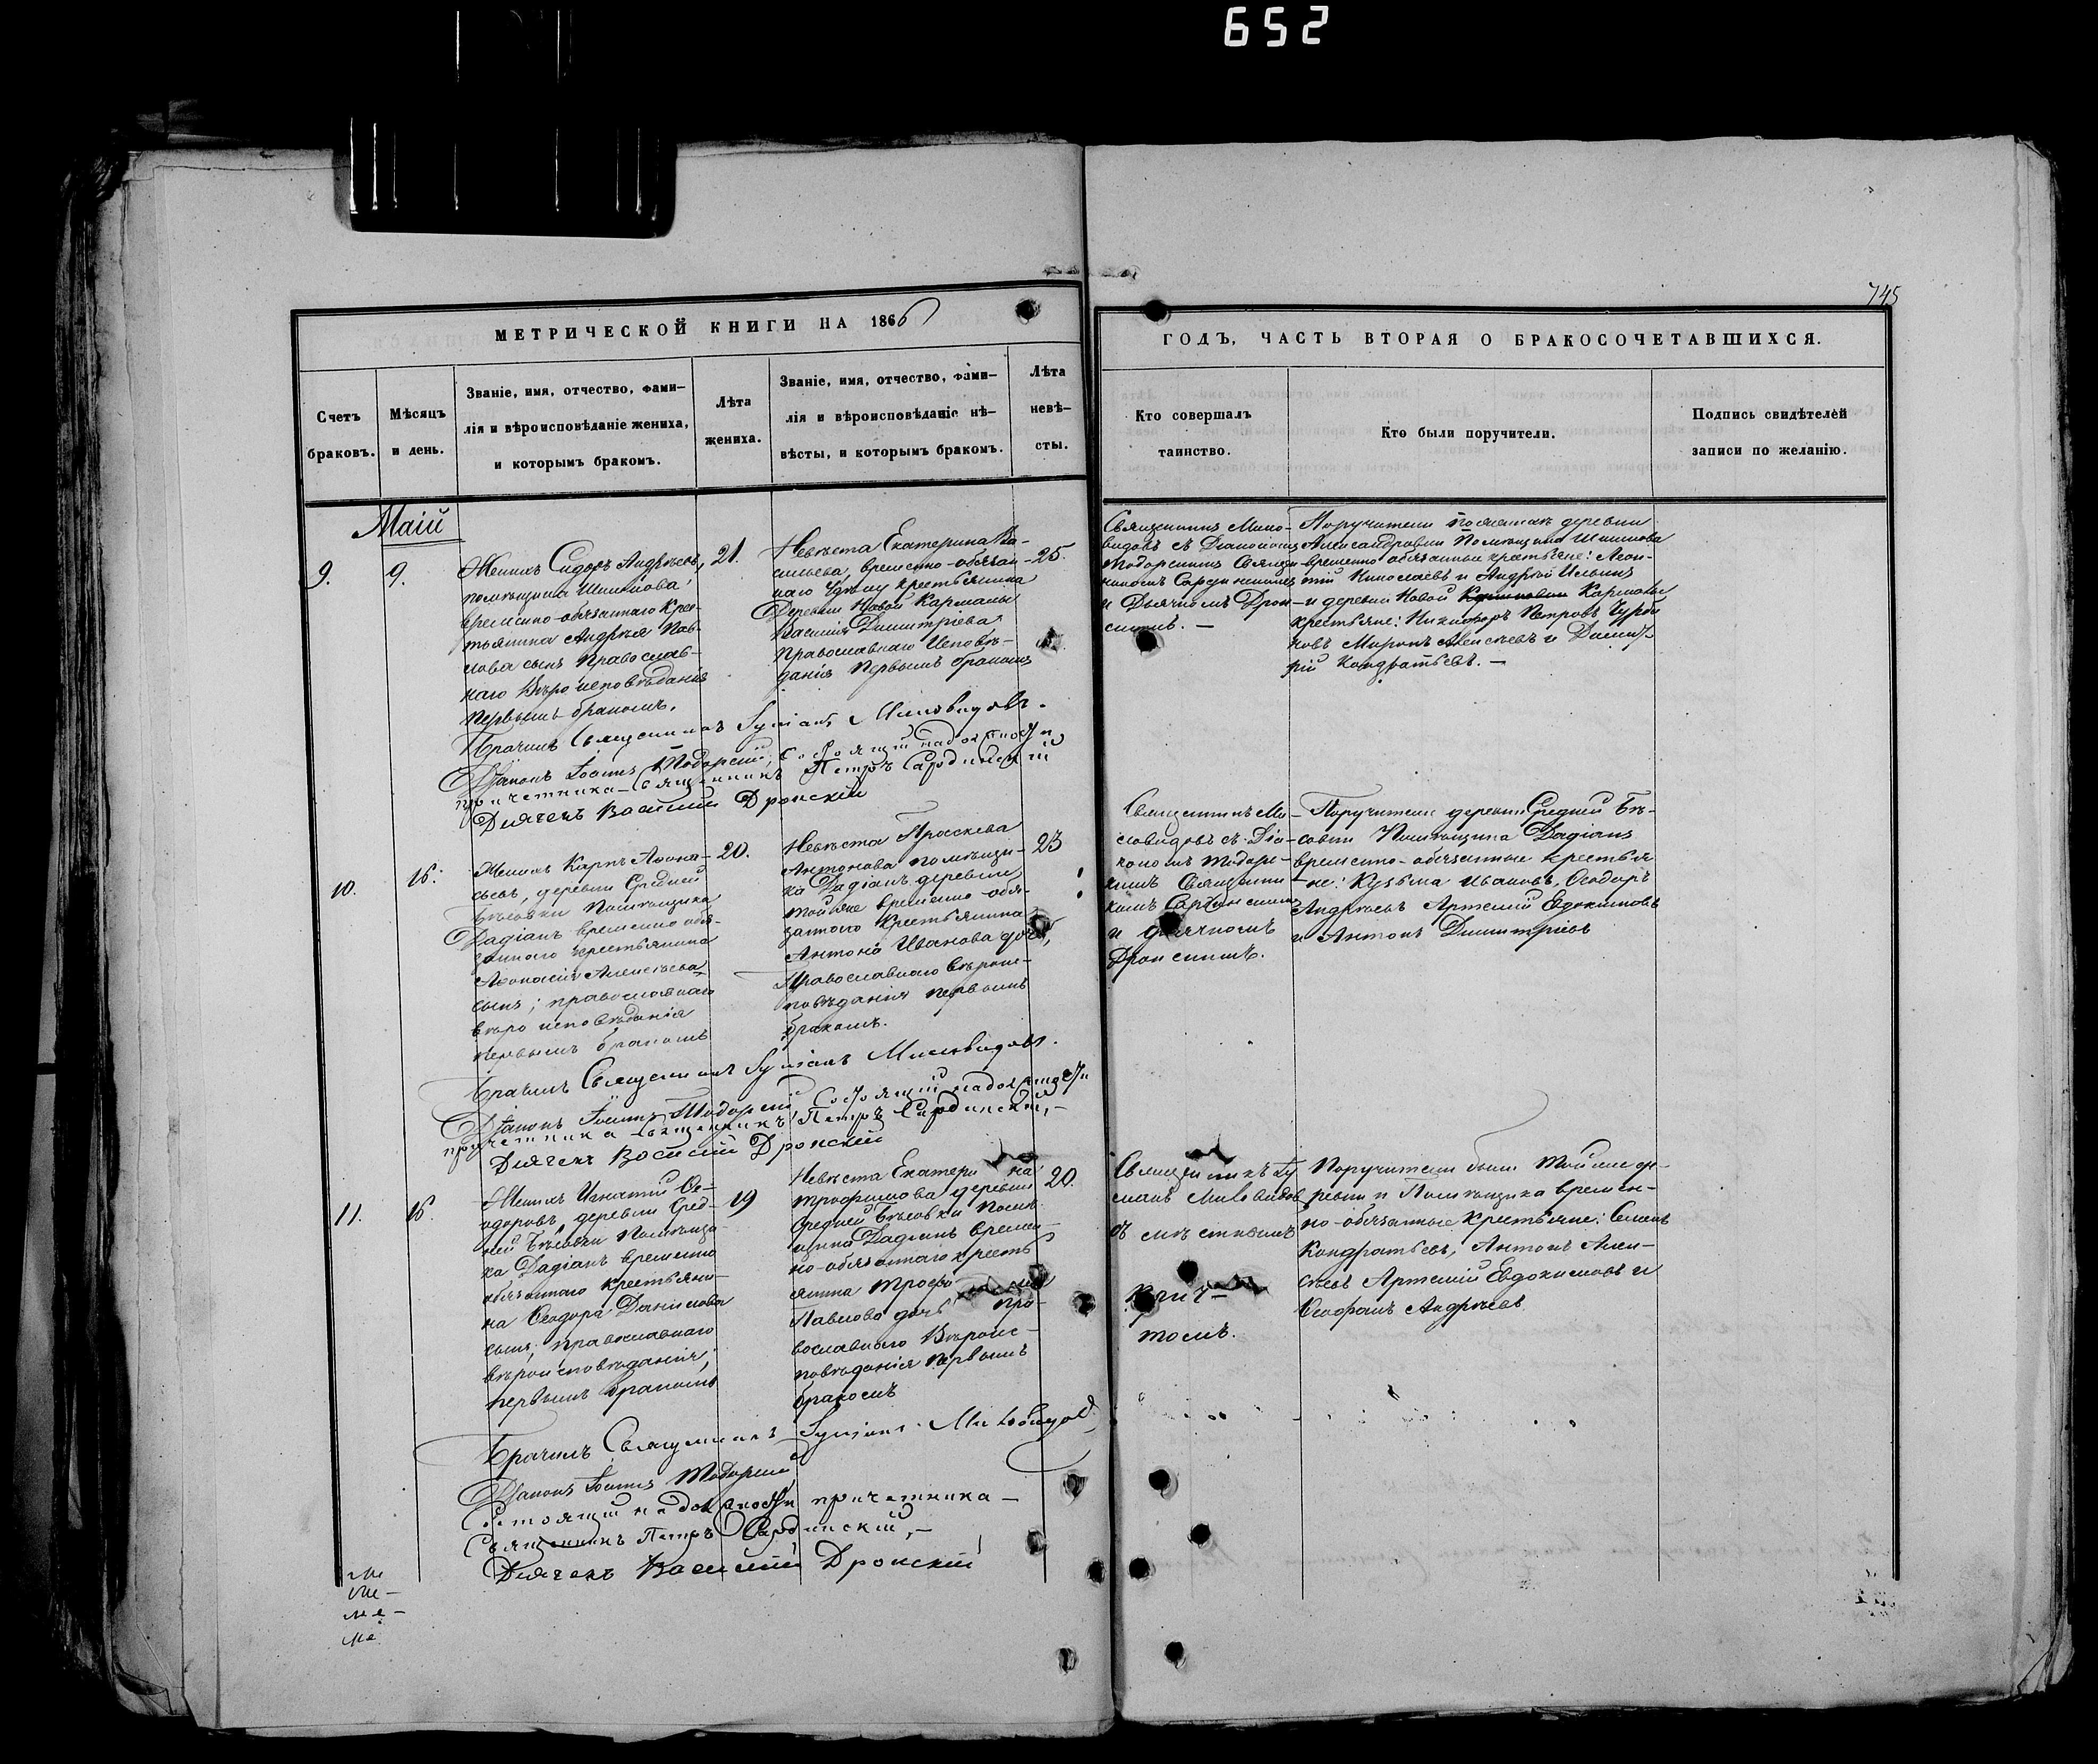 652
745
МЕТРИЧЕСКОЙ КНИГИ НА 1866
ГОДЪ, ЧАСТЬ ВТОРАЯ О БРАКОСОЧЕТАВШИХСЯ.
Счетъ
браковъ.
Мѣсяцъ
и день.
Званіе, имя, отчество, фами-
лія и вѣроисповѣданіе жениха,
и которымъ бракомъ.
Лѣта
жениха.
Званіе, имя, отчество, фами-
лія и вѣроисповѣданіе нѣ-
вѣсты, и которымъ бракомъ.
Лѣта
невѣ-
сты.
Кто совершалъ
таинство.
Кто были поручители.
Подпись свидѣтелей
записи по желанію.
Маій
9.
9.
Женихъ Сидоръ Андрѣевъ,
помѣщика Шишкова
временно-обязаннаго Крес-
тьянина Андрѣя Пав-
лова сынъ Православ-
наго Вѣроисповѣданія
Первымъ бракомъ.
21.
Невѣста Екатерина Ва-
сильева, временно-обязан-
наго крестьянина
Деревни Новой Кармалы
Василія Димитріева
Православнаго Исповѣ-
данія Первымъ бракомъ
25.
Священникъ Мило-
видовъ съ Діакономъ
Тодорскимъ Священ-
никомъ Сардинскимъ
и Дьячкомъ Дрон-
скимъ. —
Поручители деревни
Александровки Помѣщика Шишкова
временно обязанные крестьяне: Леон-
тій Николаевъ и Андрей Ильинъ
и деревни Новой Кармалы
крестьяне: Никифоръ Петровъ
Миронъ Алексѣевъ и Димит-
рій Кондратьевъ. —
Брачилъ Священникъ Миловидовъ.
Діаконъ Іоаннъ Тодорскій, Состоящій на должности
причетника — Священникъ Петръ Сардинскій
Дьячекъ Василій Дронскій
10.
16.
Женихъ Карпъ Аѳона-
сьевъ, деревни Средней
Помѣщика
Дадіанъ временно обя-
заннаго крестьянина
Аѳонасія Алексѣева
сынъ; православнаго
вѣро исповѣданія
первымъ бракомъ
20.
Невѣста Праскева
Антонова помѣщи-
ка Дадіанъ деревни
той же временно обя-
заннаго Крестьянина
Антона Иванова дочь,
Православнаго вѣроис-
повѣданія первымъ
бракомъ.
23
Священникъ Ми-
ловидовъ съ Діа-
кономъ Тодорс-
кимъ Священни-
комъ Сардинскимъ
и дьячкомъ
Дронскимъ.
Поручители деревни Средней Бѣ-
совки Помѣщика Дадіанъ
временно-обязанные крестья-
не: Кузьма Ивановъ, Ѳеодоръ
Андрѣевъ Артемій Евдокимовъ
и Антонъ Димитріевъ
Брачилъ Священникъ Миловидовъ.
Діаконъ Іоаннъ Тодорскій, Состоящій на должности
причетника Священникъ Петръ Сардинскій, —
Дьячекъ Василій Дронскій
11.
16.
Женихъ Игнатій Ѳе-
одоровъ, деревни Сред-
ней Бѣсовки Помѣщи-
ка Дадіанъ временно
обязаннаго крестьяни-
на Ѳеодора Данилова
сынъ, православнаго
вѣроисповѣданія,
первымъ бракомъ
19
Невѣста Екатерина
Трофимова деревни
Средней Бѣсовки Помѣ-
щика Дадіанъ времен-
но-обязаннаго кресть
янина
Павлова дочь Пра-
вославнаго Вѣроис-
повѣданія первымъ
бракомъ
20.
Священникъ Гу-
Миловидовъ
съ мѣстнымъ
Прич-
томъ.
Поручители были той же де-
ревни и Помѣщика времен-
но-обязанные крестьяне: Семенъ
Кондратьевъ, Антонъ Алек-
сѣевъ Артемій Евдокимовъ и
Ѳеофанъ Андрѣевъ
Брачилъ Священникъ Миловидовъ
Діаконъ Іоаннъ Тодорскій
Состоящій на должности причетника —
Священникъ Петръ Сардинскій, —
Дьячекъ Василій Дронскій